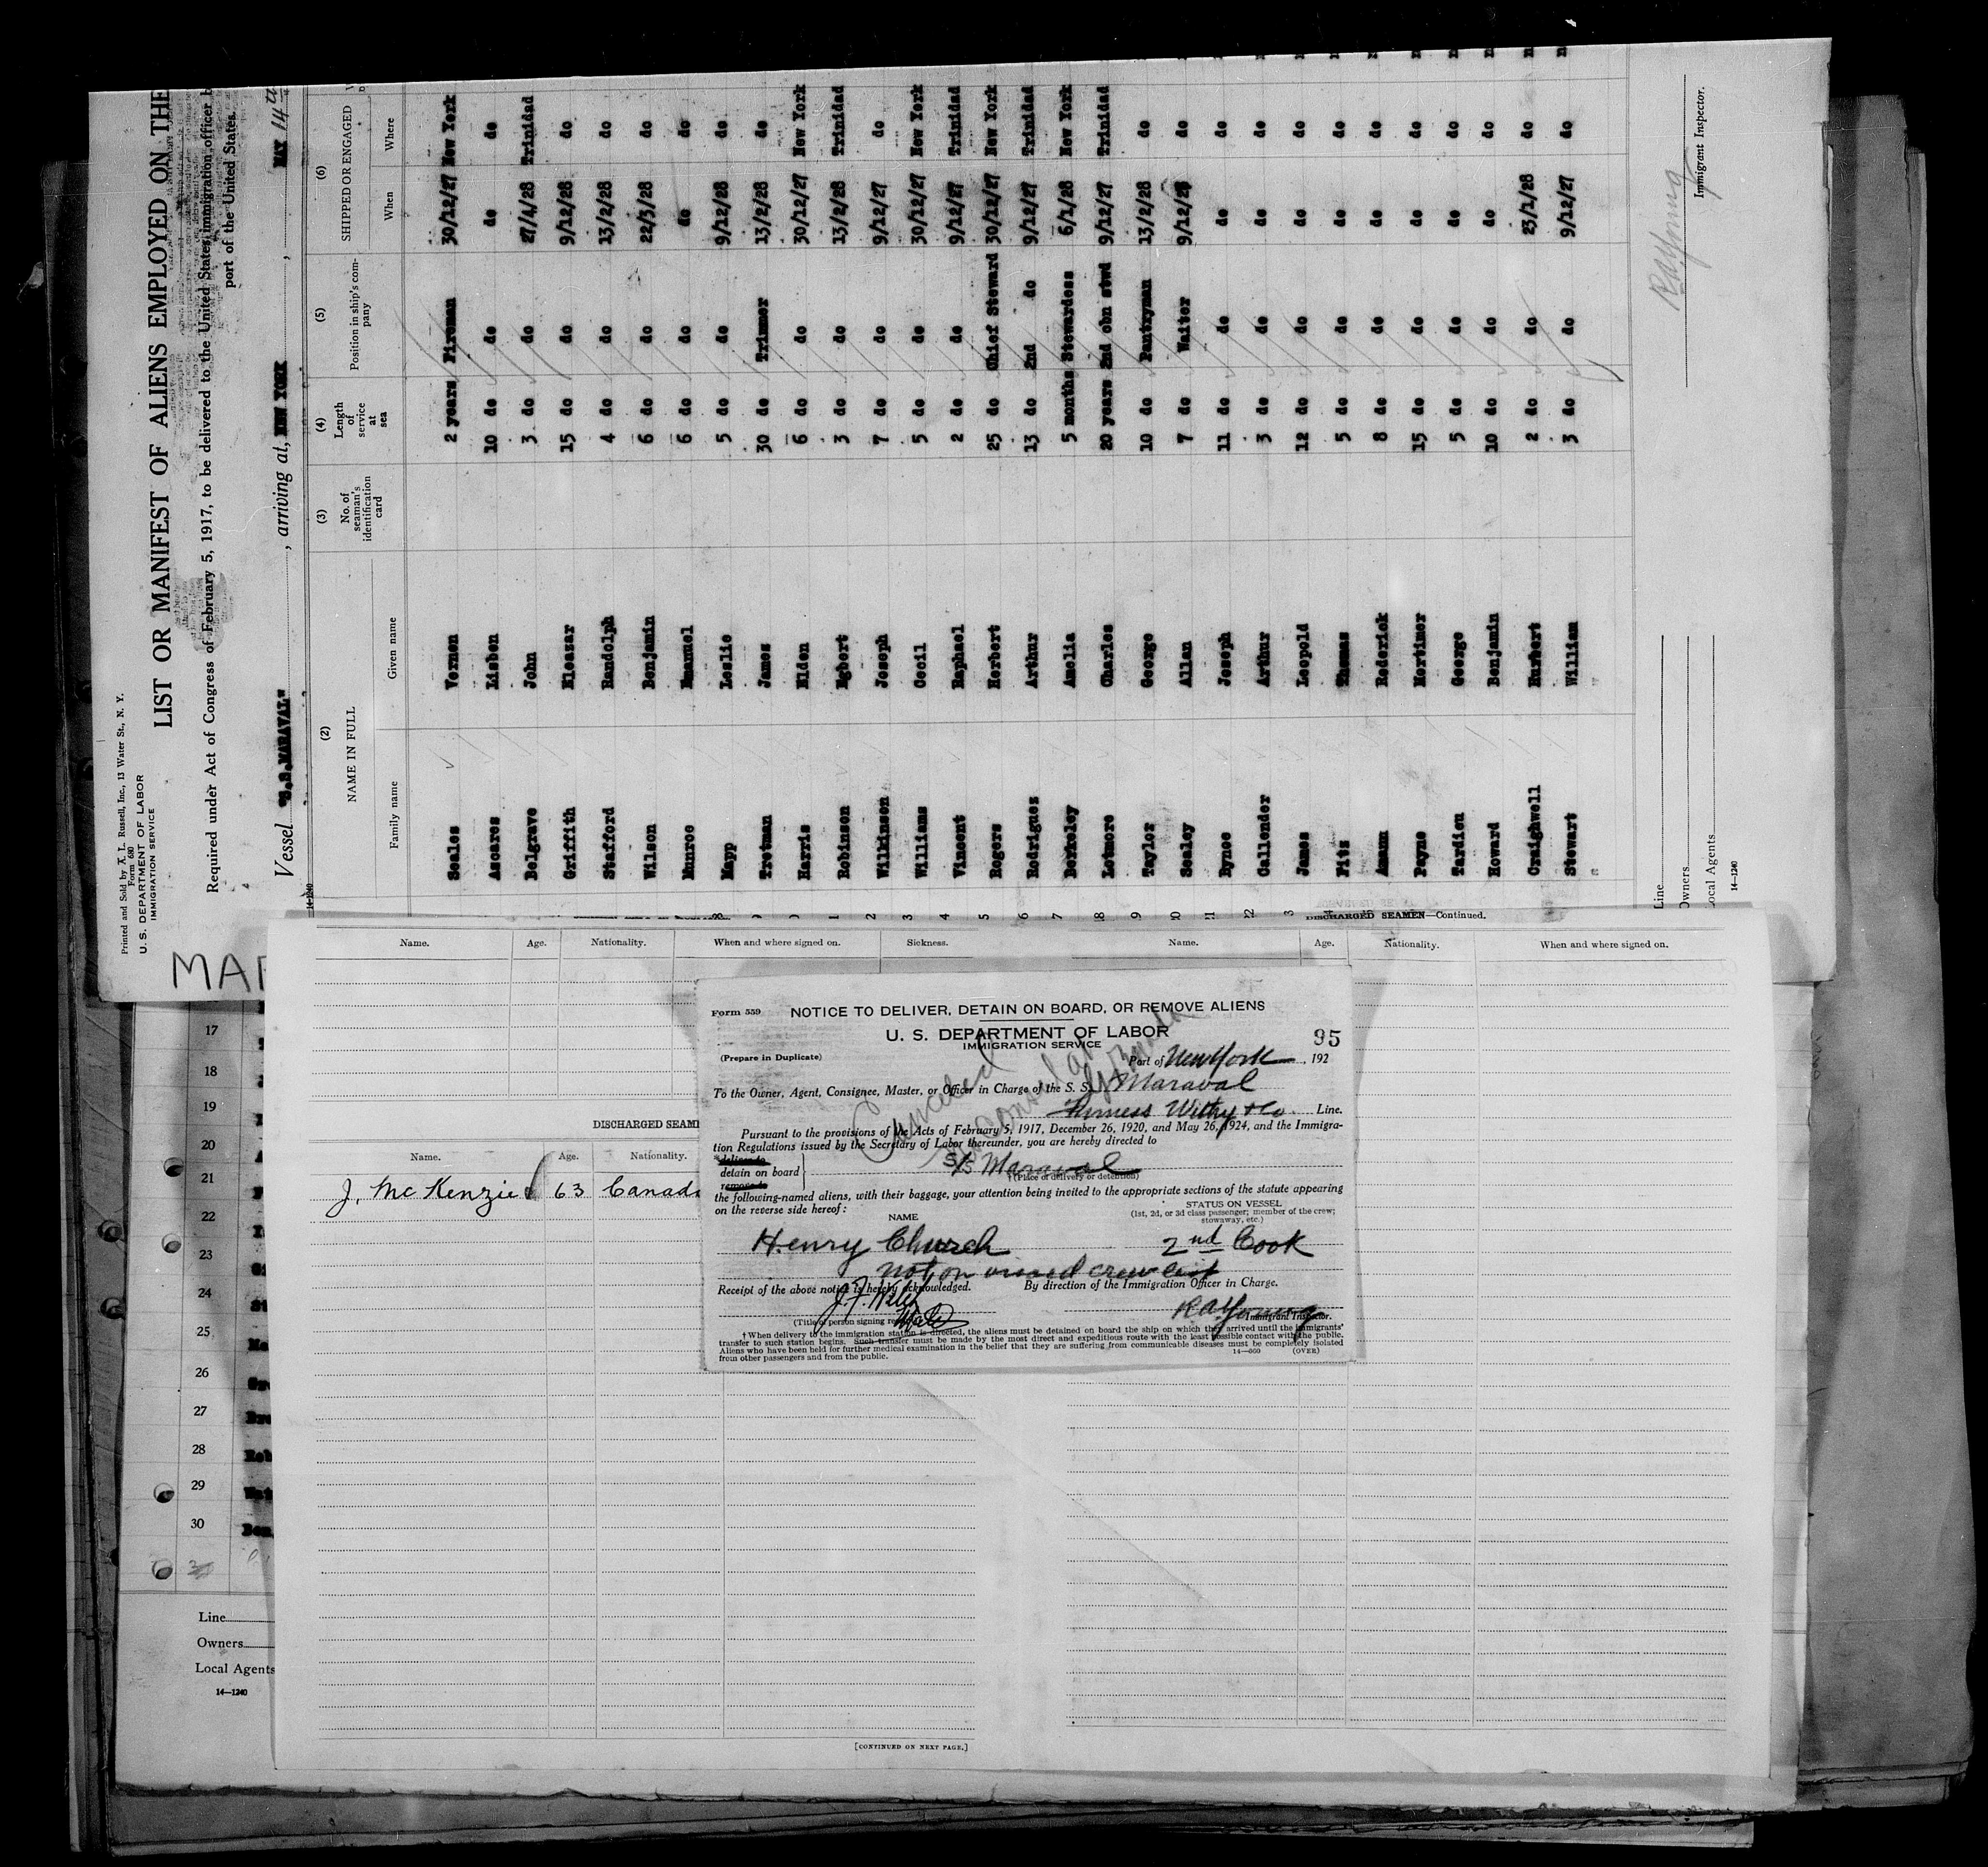 Printed and Sold by A. L. Russell, Inc., 13 Water St., N. Y.
Form 680
U. S. DEPARTMENT OF LABOR
IMMIGRATION SERVICE
LIST OR MANIFEST OF ALIENS EMPLOYED ON THE
Required under Act of Congress of February 5, 1917, to be delivered to the United States immigration officer
port of the United States.
Vessel "S.S.MARAVAL" , arriving at, NEW YORK , MAY 14th
14-1240
(2) (3) (4) (5) (6)
NAME IN FULL No. of seaman's identification card Length of service at sea Position in ship's company SHIPPED OR ENGAGED
Family name Given name When Where
Seales Vernon 2 years Fireman 30/12/27 New York
Ascares Lisben 10 do do do do
Belgrave John 3 do do 27/4/28 Trinidad
Griffith Eleazar 15 do do 9/12/28 do
Stafford Randolph 4 do do 13/2/28 do
Wilson Benjamin 6 do do 22/3/28 do
Munroe Emanuel 6 do do do do
Mapp Leslie 5 do do 9/12/28 do
Trotman James 30 do Trimmer 13/2/28 do
Harris Elden 6 do do 30/12/27 New York
Robinson Egbert 3 do do 13/2/28 Trinidad
Wilkinson Joseph 7 do do 9/12/27 do
Williams Cecil 5 do do 30/12/27 New York
Vincent Raphael 2 do do 9/12/27 Trinidad
Rogers Herbert 25 do Chief Steward 30/12/27 New York
Rodriguez Arthur 13 do 2nd do 9/12/27 Trinidad
Berkeley Amelia 5 months Stewardess 6/1/28 New York
Lotmore Charles 20 years 2nd cbn stwd 9/12/27 Trinidad
Taylor George 10 do Pantryman 13/2/28 do
Sealey Allan 7 do Waiter 9/12/28 do
Bynoe Joseph 11 do do do do
Callender Arthur 3 do do do do
James Leopold 12 do do do do
Fitz Thomas 5 do do do do
Amam Roderick 8 do do do do
Payne Mortimer 15 do do do do
Tardieu George 5 do do do do
Howard Benjamin 10 do do do do
Craighwell Hurbert 2 do do 23/1/28 do
Stewart William 3 do do 9/12/27 do
RAYoung
Immigrant Inspector.
Line
Owners
Local Agents
14-1240
MAR
17
18
19
20
21
22
23
24
25
26
27
28
29
30
Line
Owners
Local Agents
14—1240
DISCHARGED SEAMEN—Continued.
Name. Age. Nationality. When and where signed on. Sickness. Name. Age. Nationality. When and where signed on.
DISCHARGED SEAME
Name. Age. Nationality.
J. McKenzie 63 Canada
[CONTINUED ON NEXT PAGE.]
Form 559 NOTICE TO DELIVER, DETAIN ON BOARD, OR REMOVE ALIENS
U. S. DEPARTMENT OF LABOR
IMMIGRATION SERVICE
95
(Prepare in Duplicate) Port of New York , 192
To the Owner, Agent, Consignee, Master, or Officer in Charge of the S. S. Maraval
Furness Withy & Co. Line.
Canceled
Pursuant to the provisions of the Acts of February 5, 1917, December 26, 1920, and May 26, 1924, and the Immigra-
tion Regulations issued by the Secretary of Labor thereunder, you are hereby directed to
*deliver to
detain on board
remove to
S/S Maraval
†(Place of delivery or detention)
the following-named aliens, with their baggage, your attention being invited to the appropriate sections of the statute appearing
on the reverse side hereof:
NAME STATUS ON VESSEL
(1st, 2d, or 3d class passenger; member of the crew;
stowaway, etc.)
Henry Church 2nd Cook
not on visaed crew list
Receipt of the above notice is hereby acknowledged. By direction of the Immigration Officer in Charge.
RAYoung
(Title of person signing receipt) Immigrant Inspector.
† When delivery to the immigration station is directed, the aliens must be detained on board the ship on which they arrived until the immigrants'
transfer to such station begins. Such transfer must be made by the most direct and expeditious route with the least possible contact with the public.
Aliens who have been held for further medical examination in the belief that they are suffering from communicable diseases must be completely isolated
from other passengers and from the public. 14—660 (OVER)